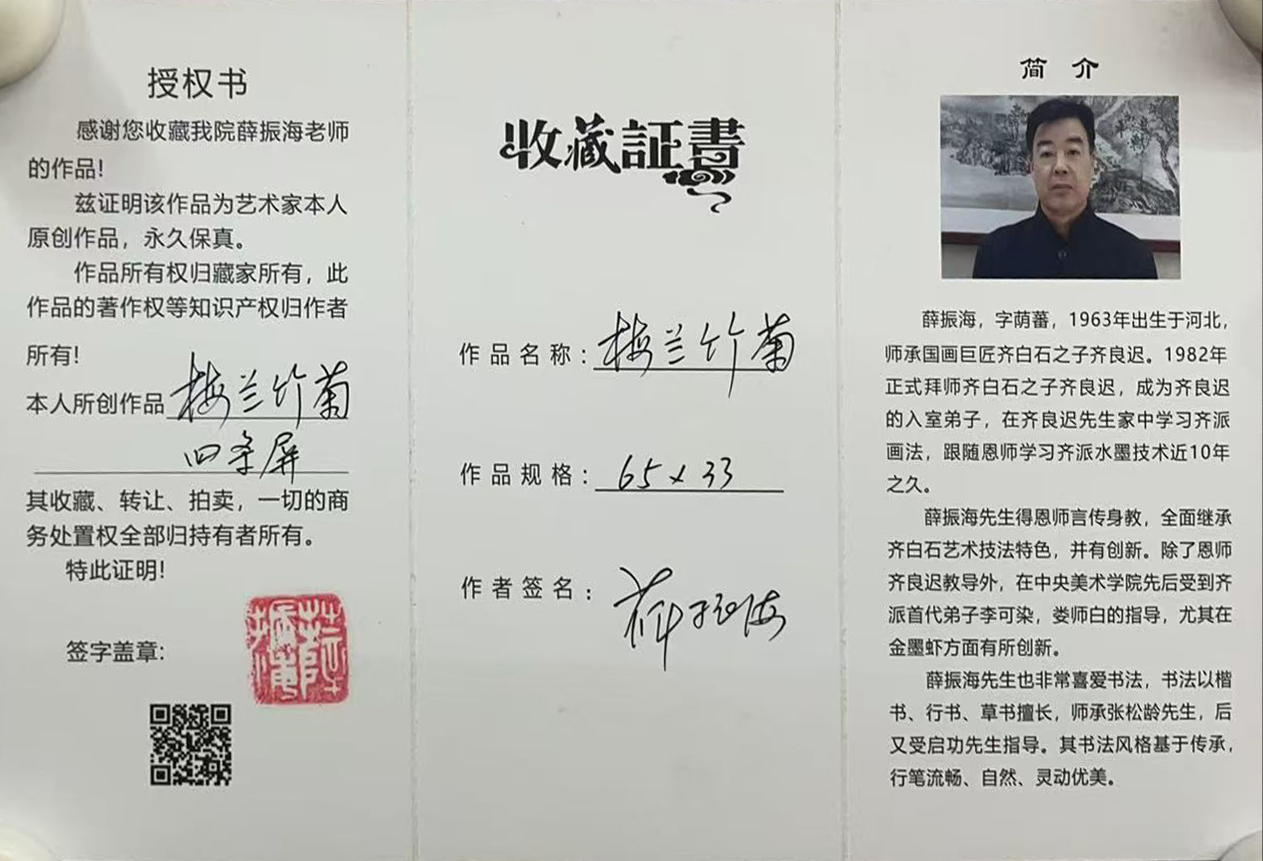 授权书
感谢您收藏我院薛振海老师
的作品！
兹证明该作品为艺术家本人
原创作品，永久保真。
作品所有权归藏家所有，此
作品的著作权等知识产权归作者
所有！
本人所创作品梅兰竹菊
四条屏
其收藏、转让、拍卖，一切的商
务处置权全部归持有者所有。
特此证明！
签字盖章：
收藏証書
作品名称：梅兰竹菊
作品规格：65x33
作者签名：薛振海
简介
薛振海，字荫蕃，1963年出生于河北，
师承国画巨匠齐白石之子齐良迟。1982年
正式拜师齐白石之子齐良迟，成为齐良迟
的入室弟子，在齐良迟先生家中学习齐派
画法，跟随恩师学习齐派水墨技术近10年
之久。
薛振海先生得恩师言传身教，全面继承
齐白石艺术技法特色，并有创新。除了恩师
齐良迟教导外，在中央美术学院先后受到齐
派首代弟子李可染，娄师白的指导，尤其在
金墨虾方面有所创新。
薛振海先生也非常喜爱书法，书法以楷
书、行书、草书擅长，师承张松龄先生，后
又受启功先生指导。其书法风格基于传承，
行笔流畅、自然、灵动优美。